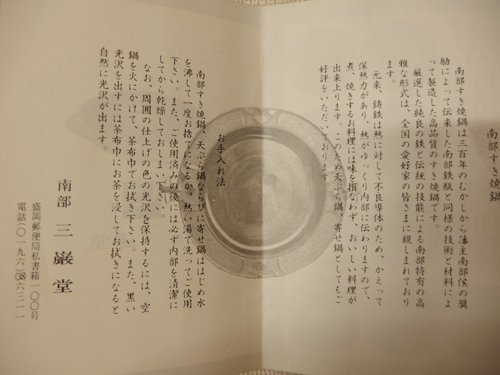 南部すき焼鍋
南部すき焼鍋は三百年のむかしから藩主南部侯の奨
励によって伝来した南部鉄瓶と同様の技術と材料によ
って製造した高品質のすき焼鍋です。
厳選した純良の鉄と伝統の技能による南部特有の高
雅な形式は、全国の愛好家の皆さまに親しまれており
ます。
元来、鋳鉄は熱に対して不良導体のため、かえって
保熱力があり、熱がゆっくり内部に伝わりますので、
煮、焼きするお料理には味を損なわず、おいしい料理が
出来上ります。このため天ぷら鍋、寄せ鍋としてもご
好評をいただいております。
お手入れ法
南部すき焼鍋、天ぷら鍋ならびに寄せ鍋ははじめ水
を沸して一度お捨てになるか、熱い湯で洗ってご使用
下さい。また、ご使用済みの後には必ず内部を清潔に
してから乾燥しておしまい下さい。
なお、周囲の仕上げの色の光沢を保持するには、空
鍋を火にかけて、茶布巾でお拭き下さい。また、黒い
光沢を出すには茶布巾にお茶を浸してお拭きになると
自然に光沢が出ます。
南部 三巌堂
盛岡郵便局私書箱一〇〇号
電話〇一九六 六三一一